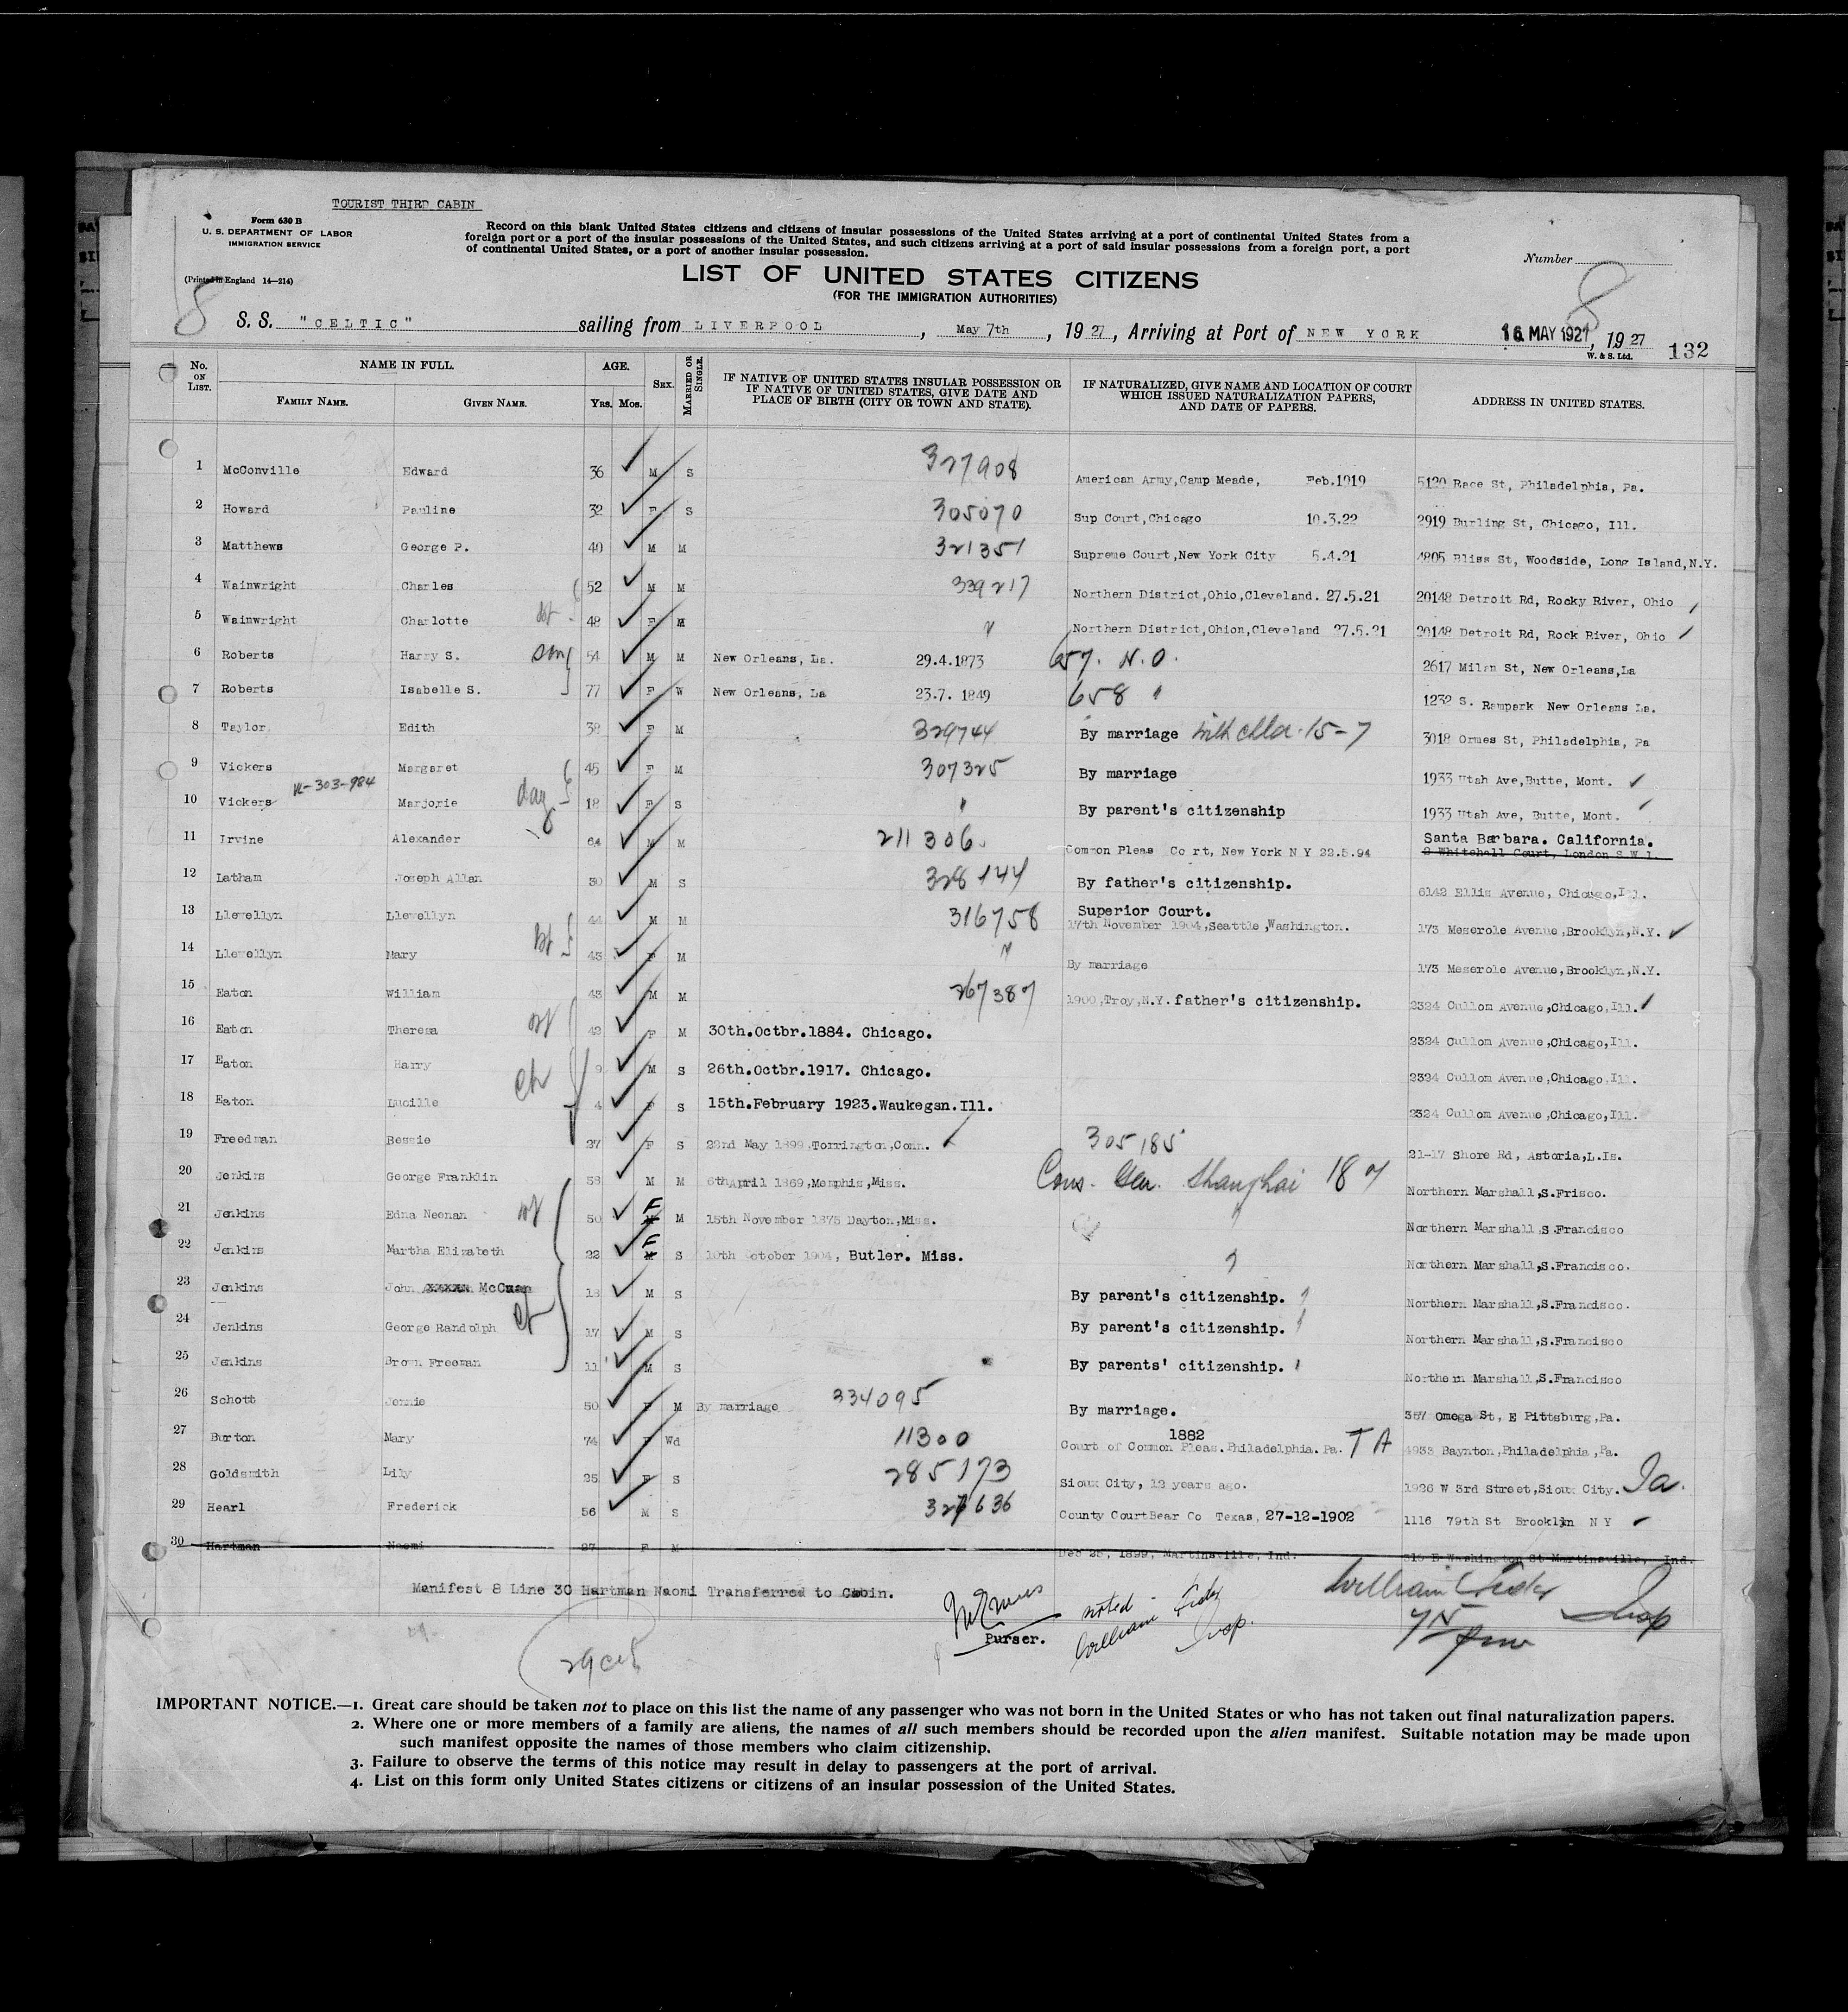 TOURIST THIRD CABIN
Form 630 B
U. S. DEPARTMENT OF LABOR
IMMIGRATION SERVICE
(Printed in England 14—214)
Record on this blank United States citizens and citizens of insular possessions of the United States arriving at a port of continental United States from a
foreign port or a port of the insular possessions of the United States, and such citizens arriving at a port of said insular possessions from a foreign port, a port
of continental United States, or a port of another insular possession.
LIST OF UNITED STATES CITIZENS
(FOR THE IMMIGRATION AUTHORITIES)
Number
8 8
S. S. "CELTIC" sailing from LIVERPOOL, May 7th, 19 27, Arriving at Port of NEW YORK 16 MAY 1927, 19 27
W. & S. Ltd. 132
No. ON LIST. NAME IN FULL. FAMILY NAME. GIVEN NAME. AGE. YRS. MOS. SEX. MARRIED OR SINGLE. IF NATIVE OF UNITED STATES INSULAR POSSESSION OR IF NATIVE OF UNITED STATES, GIVE DATE AND PLACE OF BIRTH (CITY OR TOWN AND STATE). IF NATURALIZED, GIVE NAME AND LOCATION OF COURT WHICH ISSUED NATURALIZATION PAPERS, AND DATE OF PAPERS. ADDRESS IN UNITED STATES.
1 McConville Edward 36 M S 327908 American Army,Camp Meade, Feb.1919 5120 Race St, Philadelphia, Pa.
2 Howard Pauline 32 F S 305070 Sup Court,Chicago 10.3.22 2919 Burling St, Chicago, Ill.
3 Matthews George P. 40 M M 321351 Supreme Court,New York City 5.4.21 4805 Bliss St, Woodside, Long Island,N.Y.
4 Wainwright Charles 52 M M 339217 Northern District,Ohio,Cleveland. 27.5.21 20148 Detroit Rd, Rocky River, Ohio
5 Wainwright Charlotte 48 F M " Northern District,Ohion,Cleveland 27.5.21 20148 Detroit Rd, Rock River, Ohio
6 Roberts Harry S. son 54 M M New Orleans, La. 29.4.1873 657. N.O. 2617 Milan St, New Orleans,La
7 Roberts Isabelle S. 77 F W New Orleans, La 23.7. 1849 658 " 1232 S. Rampark New Orleans La.
8 Taylor Edith 38 F M 329744 By marriage 15-7 3018 Ormes St, Philadelphia, Pa
9 Vickers Margaret 45 F M 307325 By marriage 1933 Utah Ave,Butte, Mont.
R-303-984
10 Vickers Marjorie dau 18 F S " By parent's citizenship 1933 Utah Ave, Butte, Mont.
11 Irvine Alexander 64 M M 211306. Common Pleas Co rt, New York N Y 22.5.94 Santa Barbara. California.
2 Whitehall Court, London S W 1.
12 Latham Joseph Allan 30 M S 328144 By father's citizenship. 6142 Ellis Avenue, Chicago,Ill.
13 Llewellyn Llewellyn 44 M M 316758 Superior Court.
17th November 1904,Seattle,Washington. 173 Meserole Avenue,Brooklyn,N.Y.
14 Llewellyn Mary 43 F M " By marriage 173 Meserole Avenue,Brooklyn,N.Y.
15 Eaton William 43 M M 267387 1900,Troy,N.Y. father's citizenship. 2324 Cullom Avenue,Chicago,Ill.
16 Eaton Theresa 42 F M 30th.Octbr.1884. Chicago. 2324 Cullom Avenue,Chicago,Ill.
17 Eaton Harry ch 9 M S 26th.Octbr.1917. Chicago. 2324 Cullom Avenue,Chicago,Ill.
18 Eaton Lucille 4 F S 15th.February 1923.Waukegan.Ill. 2324 Cullom Avenue,Chicago,Ill.
19 Freedman Bessie 27 F S 22nd May 1899,Torrington,Conn. 305185 21-17 Shore Rd, Astoria,L.Is.
20 Jenkins George Franklin 58 M M 6th April 1869,Memphis,Miss. Cons. Gen. Shanghai 187 Northern Marshall,S.Frisco.
21 Jenkins Edna Neenan 50 F M 15th November 1875 Dayton,Miss. Northern Marshall,S.Francisco
22 Jenkins Martha Elizabeth 22 F S 10th October 1904, Butler. Miss. Northern Marshall,S.Francisco.
23 Jenkins John McCuan 18 M S By parent's citizenship. Northern Marshall,S.Francisco.
24 Jenkins George Randolph ch 17 M S By parent's citizenship. Northern Marshall,S.Francisco
25 Jenkins Brown Freeman 11 M S By parents' citizenship. Northern Marshall,S.Francisco
26 Schott Jennie 50 F M By marriage 334095 By marriage. 357 Omega St, E Pittsburg,Pa.
27 Burton Mary 74 F Wd 11300 1882
Court of Common Pleas.Philadelphia. Pa. T A 4933 Baynton,Philadelphia,Pa.
28 Goldsmith Lily 25 F S 285173 Sioux City, 12 years ago. 1926 W 3rd Street,Sioux City. Ia.
29 Hearl Frederick 56 M S 327636 County CourtBear Co Texas, 27-12-1902 1116 79th St Brooklyn N Y
30 Hartman Naomi 27 F M Dec 25, 1899, Martinsville, Ind. E Washington St Martinsville, Ind.
Manifest 8 Line 30 Hartman Naomi Transferred to Cabin.
Purser.
noted
William Insp.
William Insp
IMPORTANT NOTICE.—1. Great care should be taken not to place on this list the name of any passenger who was not born in the United States or who has not taken out final naturalization papers.
2. Where one or more members of a family are aliens, the names of all such members should be recorded upon the alien manifest. Suitable notation may be made upon
such manifest opposite the names of those members who claim citizenship.
3. Failure to observe the terms of this notice may result in delay to passengers at the port of arrival.
4. List on this form only United States citizens or citizens of an insular possession of the United States.